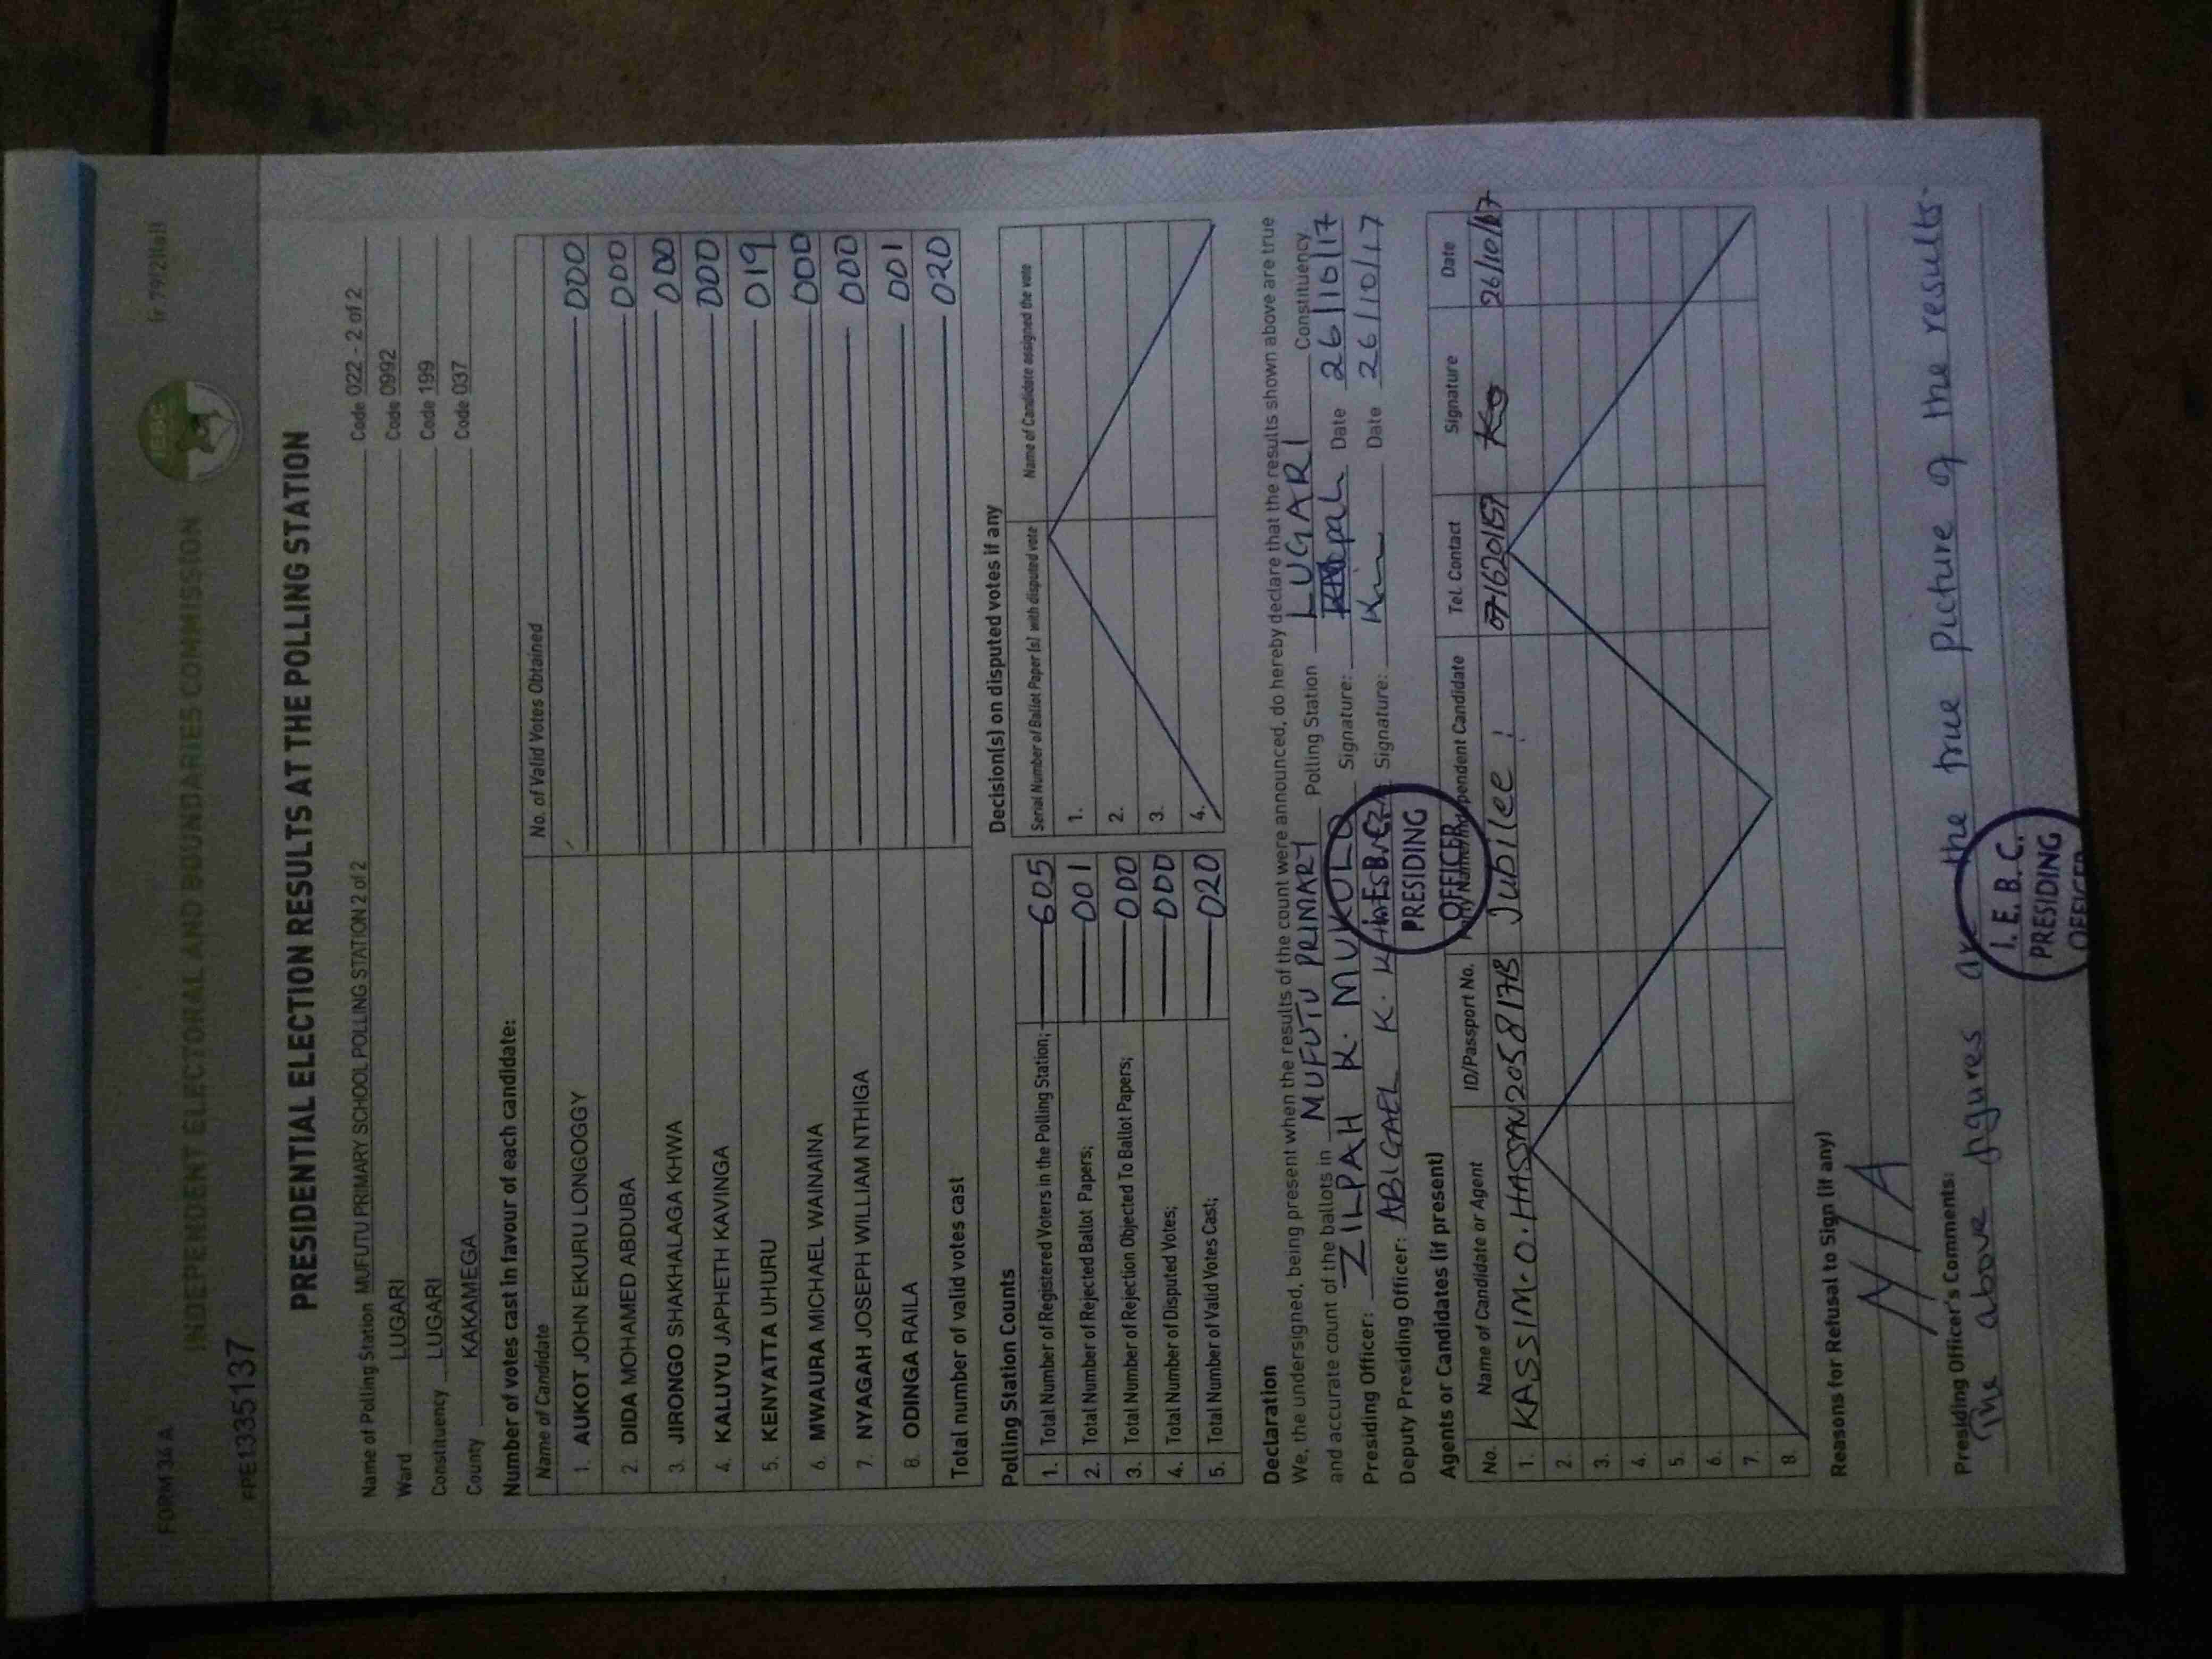 FORM 34A (r 79(2)(a))
INDEPENDENT ELECTORAL AND BOUNDARIES COMMISSION
IEBC
PRESIDENTIAL ELECTION RESULTS AT THE POLLING STATION
Name of Polling Station MUFUTU PRIMARY SCHOOL POLLING STATION 2 of 2 Code 022 - 2 of 2
Ward LUGARI Code 0992
Constituency LUGARI Code 199
County KAKAMEGA Code 037
Number of votes cast in favour of each candidate:
Name of Candidate No. of Valid Votes Obtained
1. AUKOT JOHN EKURU LONGOGGY 000
2. DIDA MOHAMED ABDUBA 000
3. JIRONGO SHAKHALAGA KHWA 000
4. KALUYU JAPHETH KAVINGA 000
5. KENYATTA UHURU 019
6. MWAURA MICHAEL WAINAINA 000
7. NYAGAH JOSEPH WILLIAM NTHIGA 000
8. ODINGA RAILA 001
Total number of valid votes cast 020
Polling Station Counts
1. Total Number of Registered Voters in the Polling Station; 605
2. Total Number of Rejected Ballot Papers; 001
3. Total Number of Rejection Objected To Ballot Papers; 000
4. Total Number of Disputed Votes; 000
5. Total Number of Valid Votes Cast; 020
Decision(s) on disputed votes if any
Serial Number of Ballot Paper (s) with disputed vote Name of Candidate assigned the vote
1.
2.
3.
4.
Declaration
We, the undersigned, being present when the results of the count were announced, do hereby declare that the results shown above are true
and accurate count of the ballots in MUFUTU PRIMARY Polling Station LUGARI Constituency
Presiding Officer: ZILPAH K. MUKULO Signature: Date 26/10/17
Deputy Presiding Officer: ABIGAEL K. Signature: Date 26/10/17
PRESIDING
OFFICER
Agents or Candidates (if present)
No. Name of Candidate or Agent ID/Passport No. Party Name/Independent Candidate Tel. Contact Signature Date
1. KASSIM.O.HASSAN Jubilee 26/10/17
2.
3.
4.
5.
6.
7.
8.
Reasons for Refusal to Sign (if any)
N/A
Presiding Officer's Comments:
The above figures are the true picture of the results.
I.E.B.C.
PRESIDING
OFFICER